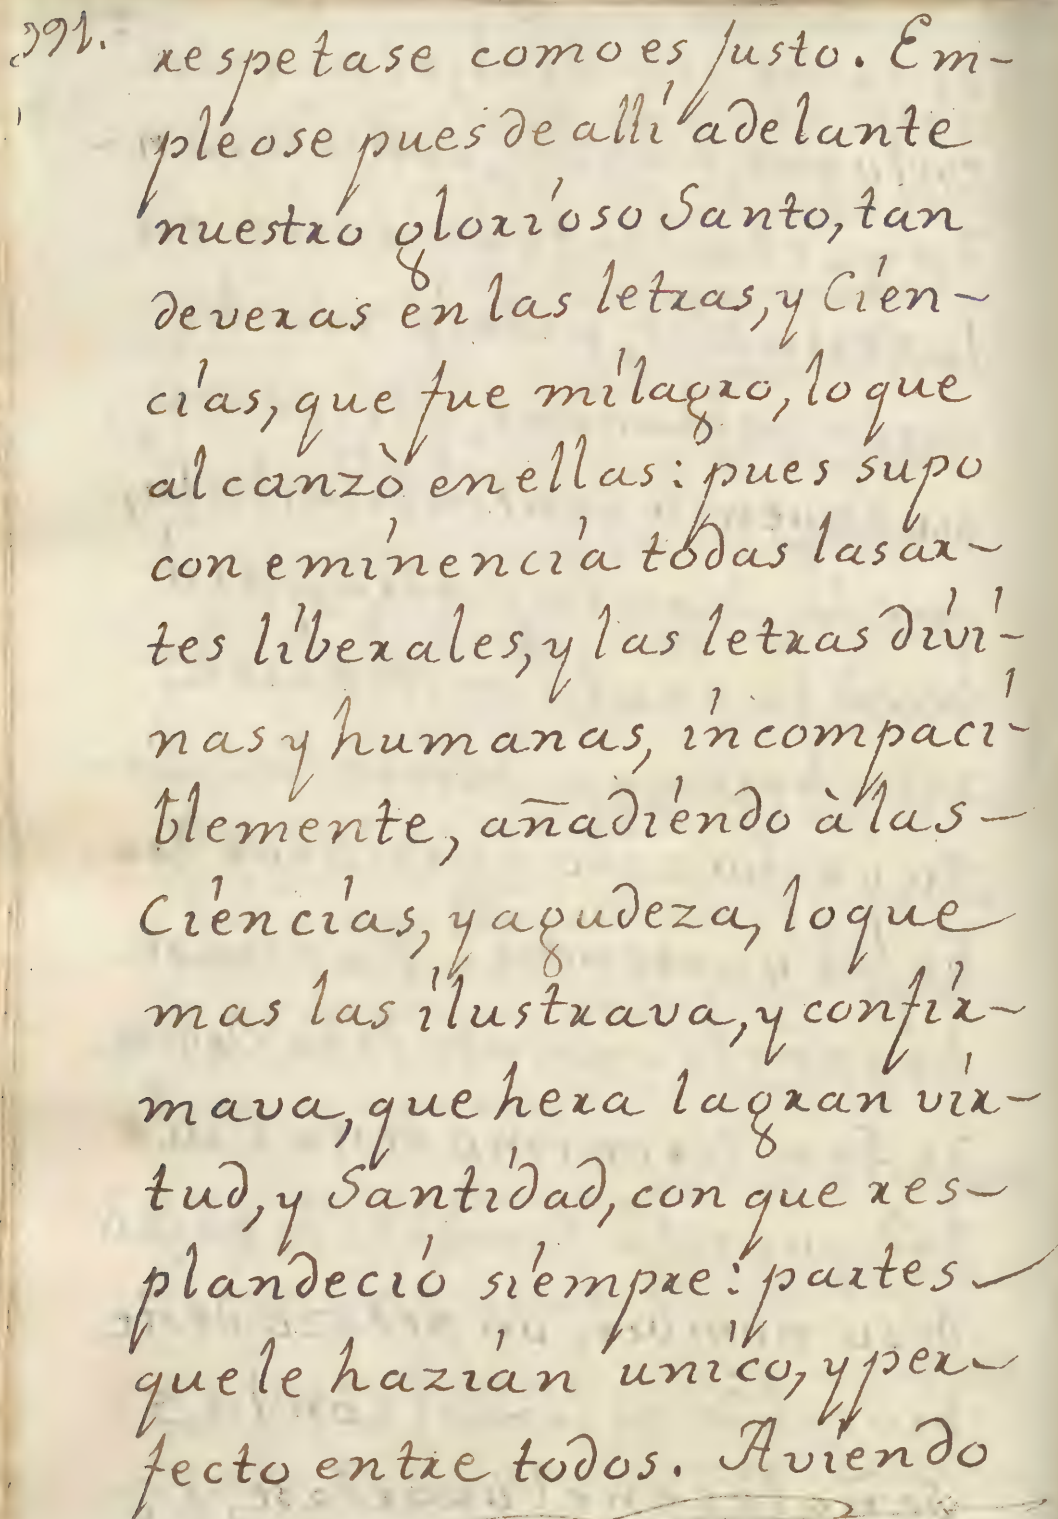 391.
respetase como es justo. Em-
pleose pues de alli adelante
nuestro glorioso Santo, tan
deveras en las letras, y Cien-
cias, que fue milagro, lo que
alcanzò en ellas: pues supo
con eminencia todas las ar-
tes liberales, y las letras divi-
nas y humanas, incompaci-
blemente, añadiendo à las
Ciencias, y agudeza, lo que
mas las ilustrava, y confir-
mava, que hera la gran vir-
tud, y Santidad, con que res-
plandeciò siempre: partes
que le hazian unico, y per-
fecto entre todos. Aviendo